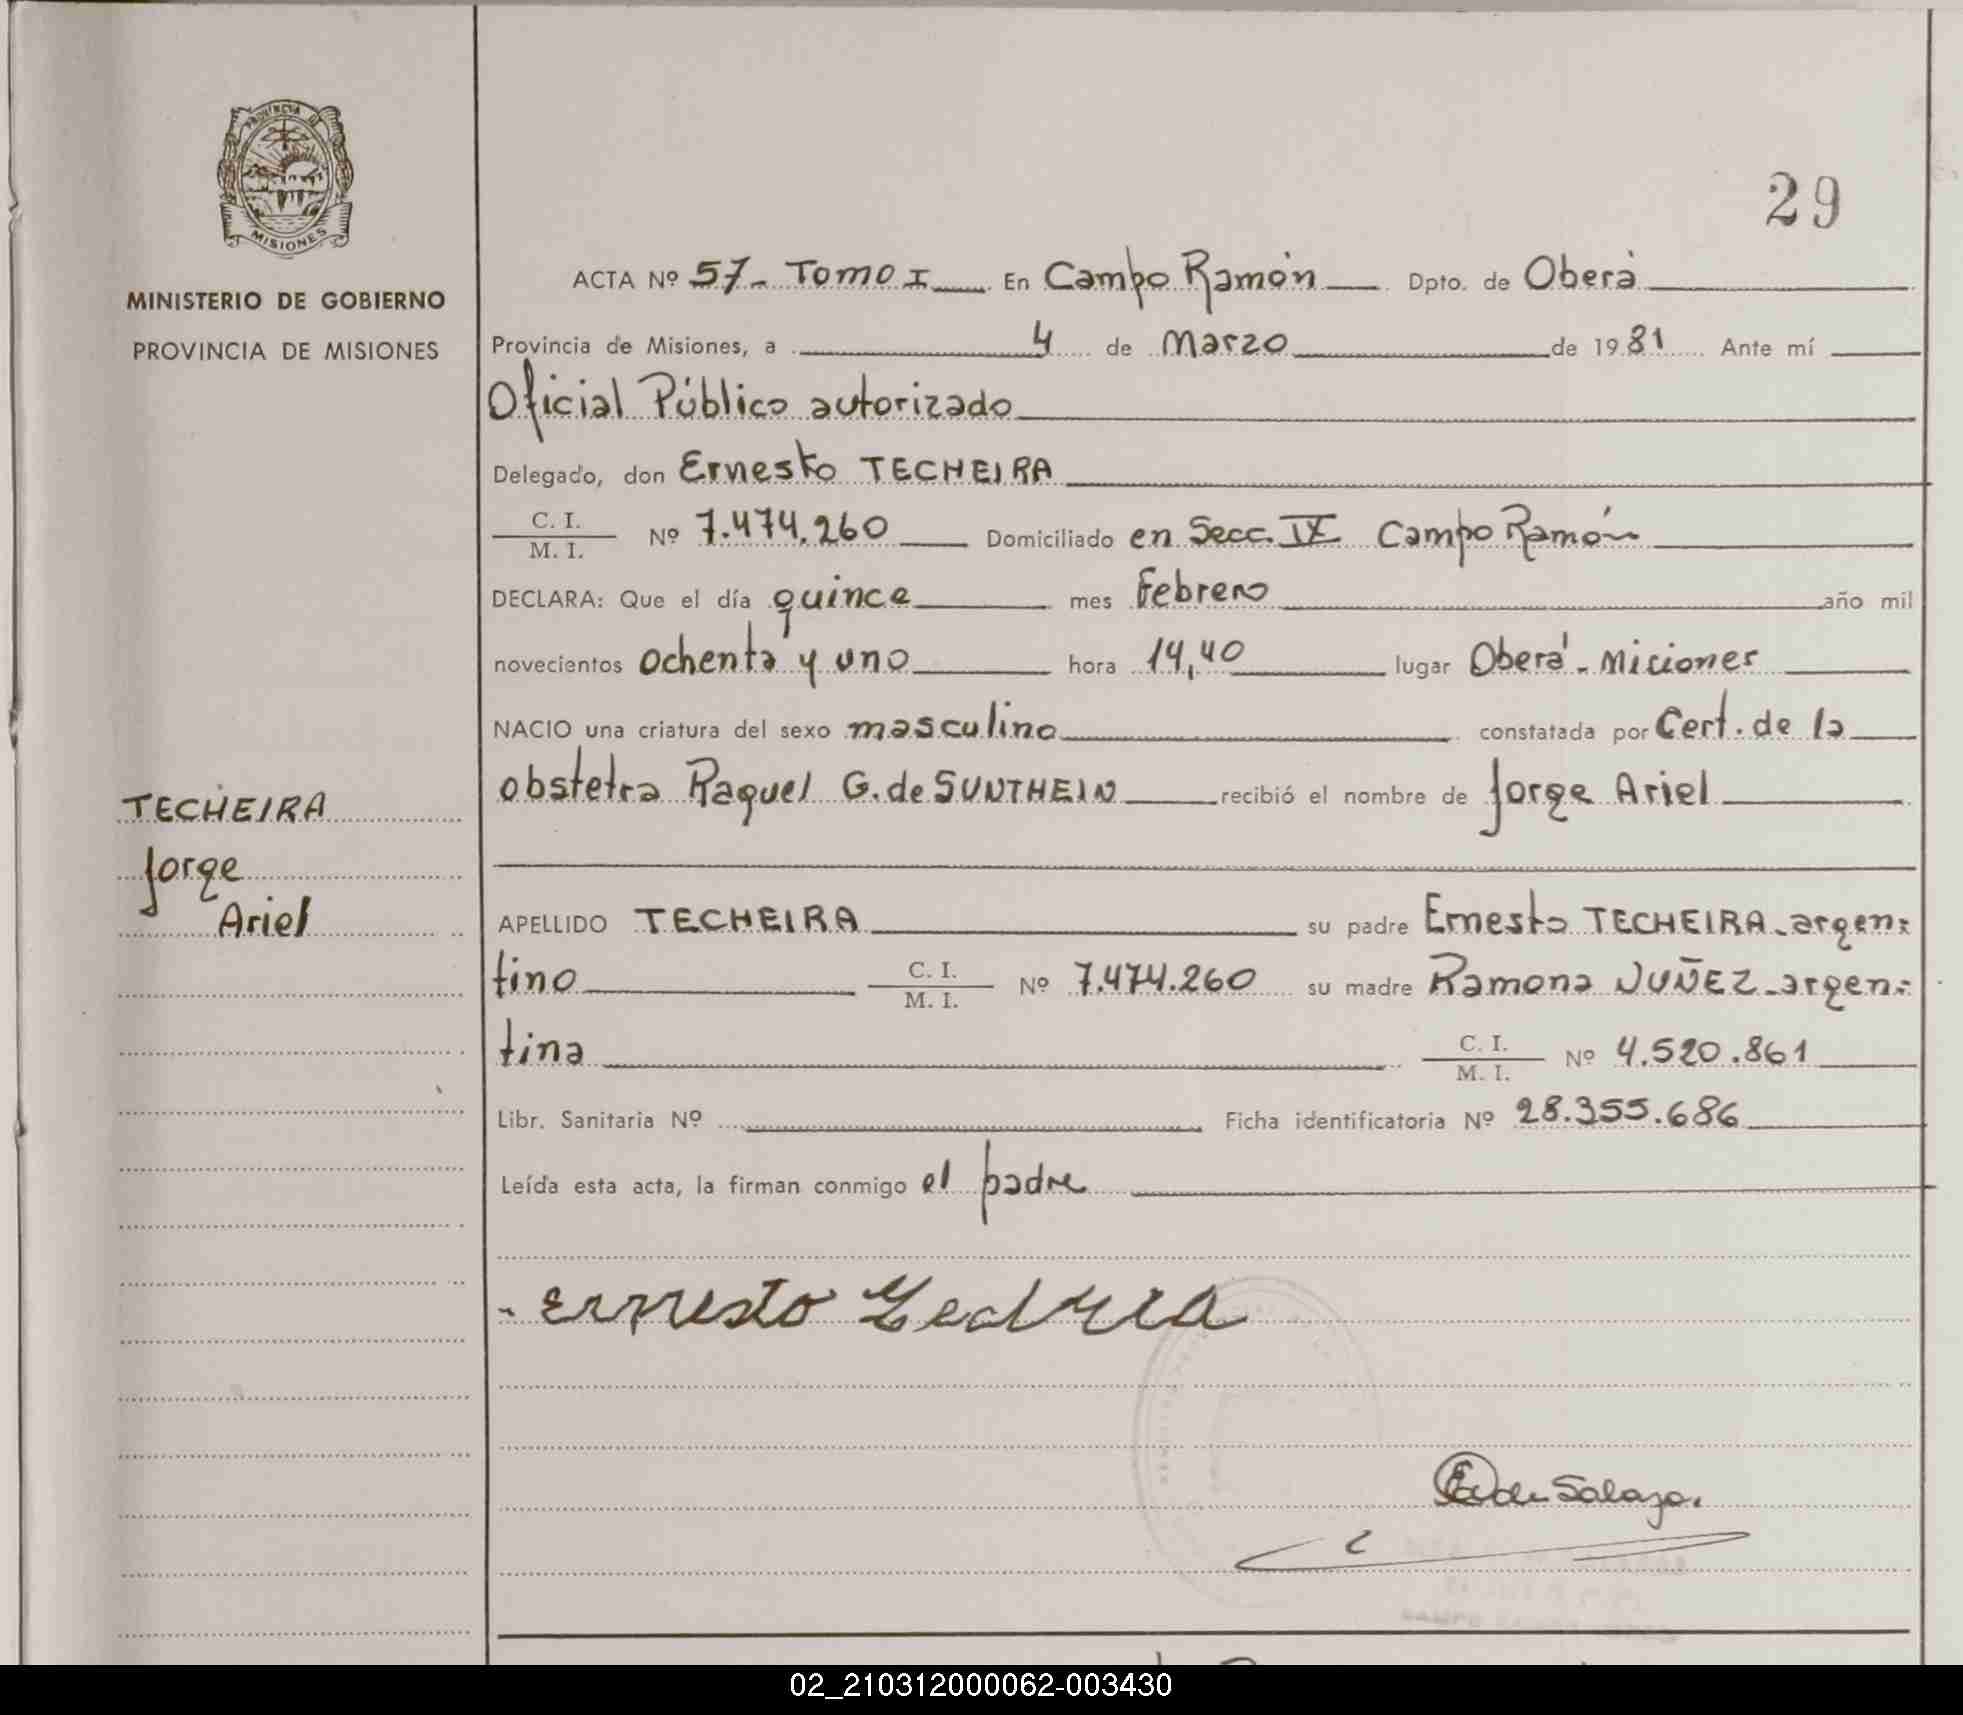 PROVINCIA DE
MISIONES
MINISTERIO DE GOBIERNO
PROVINCIA DE MISIONES
TECHEIRA
Jorge
Ariel
29
ACTA Nº 57- Tomo I En Campo Ramón Dpto. de Oberá
Provincia de Misiones, a 4 de Marzo de 1981 Ante mí
Oficial Público autorizado
Delegado, don Ernesto TECHEIRA
C. I.
M. I. Nº 7.474.260 Domiciliado en Secc. IX Campo Ramón
DECLARA: Que el día quince mes Febrero año mil
novecientos ochenta y uno hora 14,40 lugar Oberá - Misiones
NACIO una criatura del sexo masculino constatada por Cert. de la
obstetra Raquel G. de SUNTHEIN recibió el nombre de Jorge Ariel
APELLIDO TECHEIRA su padre Ernesto TECHEIRA - argen:
tino C. I.
M. I. Nº 7.474.260 su madre Ramona NUÑEZ - argen:
tina C. I.
M. I. Nº 4.520.861
Libr. Sanitaria Nº Ficha identificatoria Nº 28.355.686
Leída esta acta, la firman conmigo el padre
- Ernesto Techeira
de Salazar
02_210312000062-003430